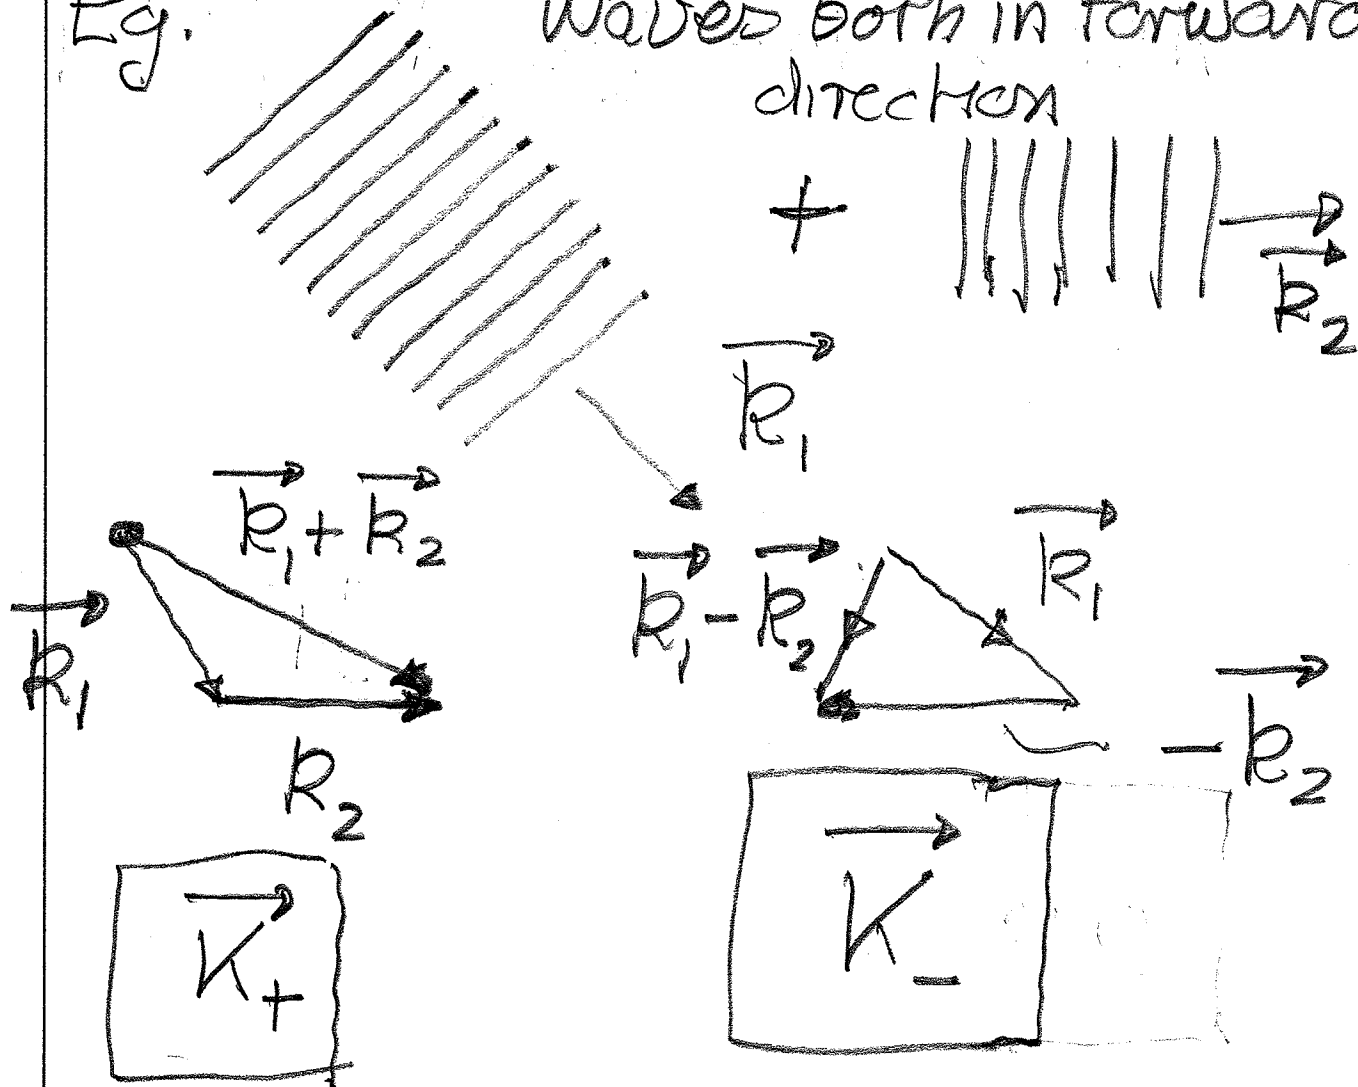 Eg. Waves both in forward
direction
+
k⃗₂
k⃗₁
k⃗₁ + k⃗₂
k⃗₁ - k⃗₂
k⃗₁
k⃗₁
- k⃗₂
k₂
K⃗₊
K⃗₋